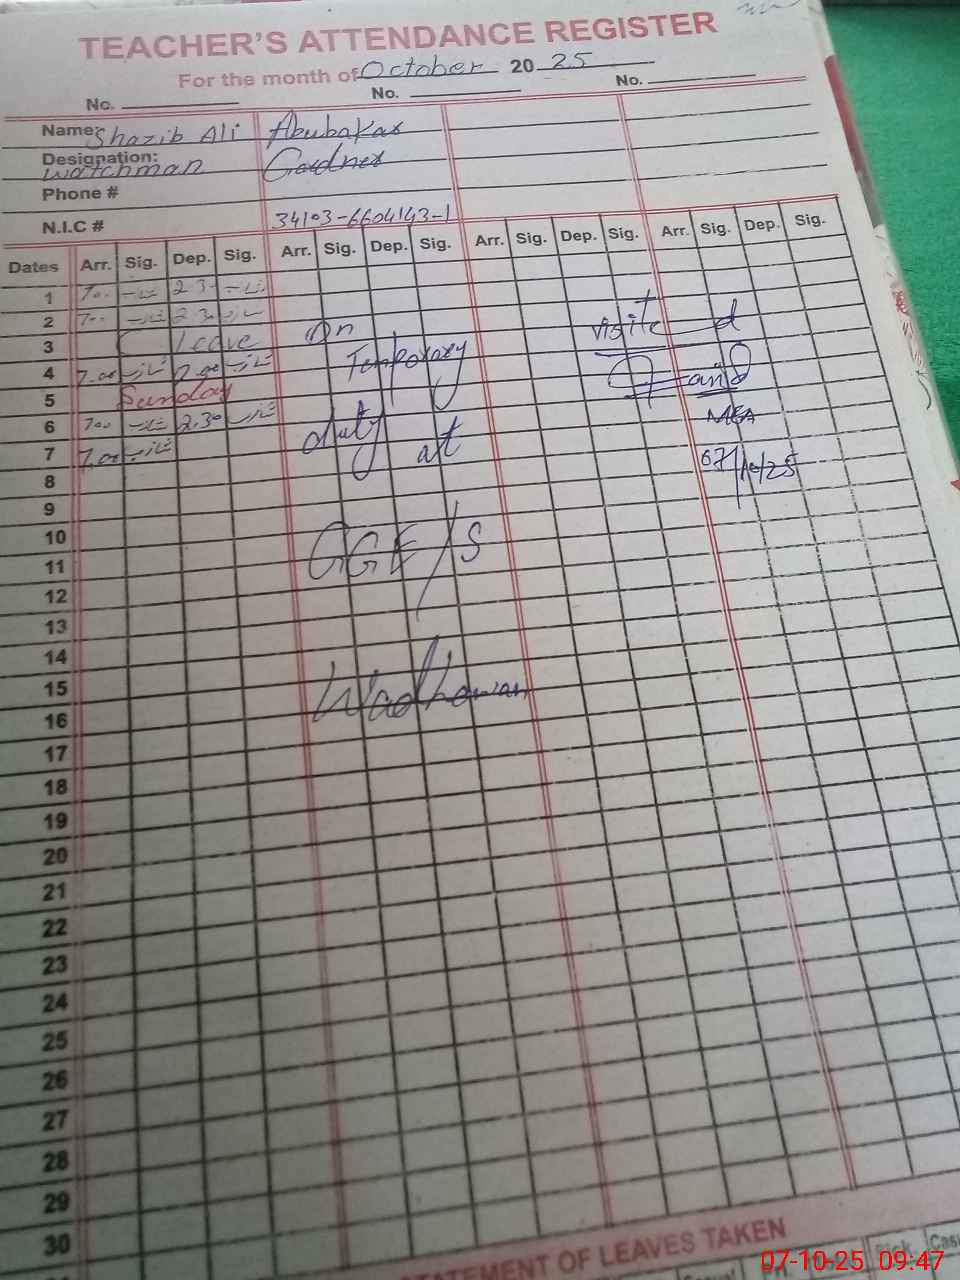 TEACHER'S ATTENDANCE REGISTER
For the month of October 20 25
No. No. No.
Name: Shazib Ali Abubakar
Designation: Watchman Gardner
Phone #
N.I.C # 34103-6604143-1
Dates Arr. Sig. Dep. Sig. Arr. Sig. Dep. Sig. Arr. Sig. Dep. Sig. Arr. Sig. Dep. Sig.
1 7.00 شازب 2.30 شازب
2 7.00 شازب 2.30 شازب
3 Leave
4 7.00 شازب شازب
5 Sunday
6 7.00 شازب 2.30 شازب
7 7.00 شازب
8
9
10
11
12
13
14
15
16
17
18
19
20
21
22
23
24
25
26
27
28
29
30
On
Temporary
duty at
GGE/S
Wadhowan
visited
MEA
07/10/25
STATEMENT OF LEAVES TAKEN
07-10-25 09:47